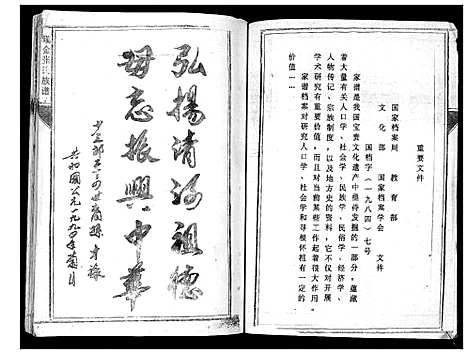 重要文件
国家档案局 教育部
文化部 国家档案学会 文件
国档字(一九八四)七号
家谱是我国宝贵文化遗产中亟待发掘的一部分，蕴藏
着大量有关人口学、社会学、民族学、民俗学、经济学、
人物传记、宗族制度，以及地方史的资料，它不仅对开展
学术研究有重要价值，而且对当前某些工作起着很大作用。
家谱档案对研究人口学、社会学和寻根怀祖有一定的
价值……
弘揚清河祖德
毋忘振興中華
共和國公元一九九〇年菊月
张氏族谱